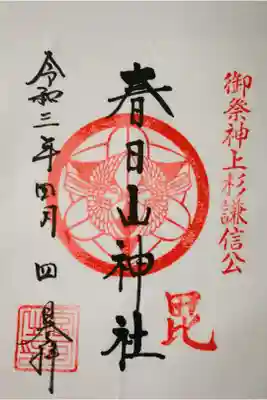 御祭神上杉謙信公
毘
春日山神社
令和三年四月四日拝